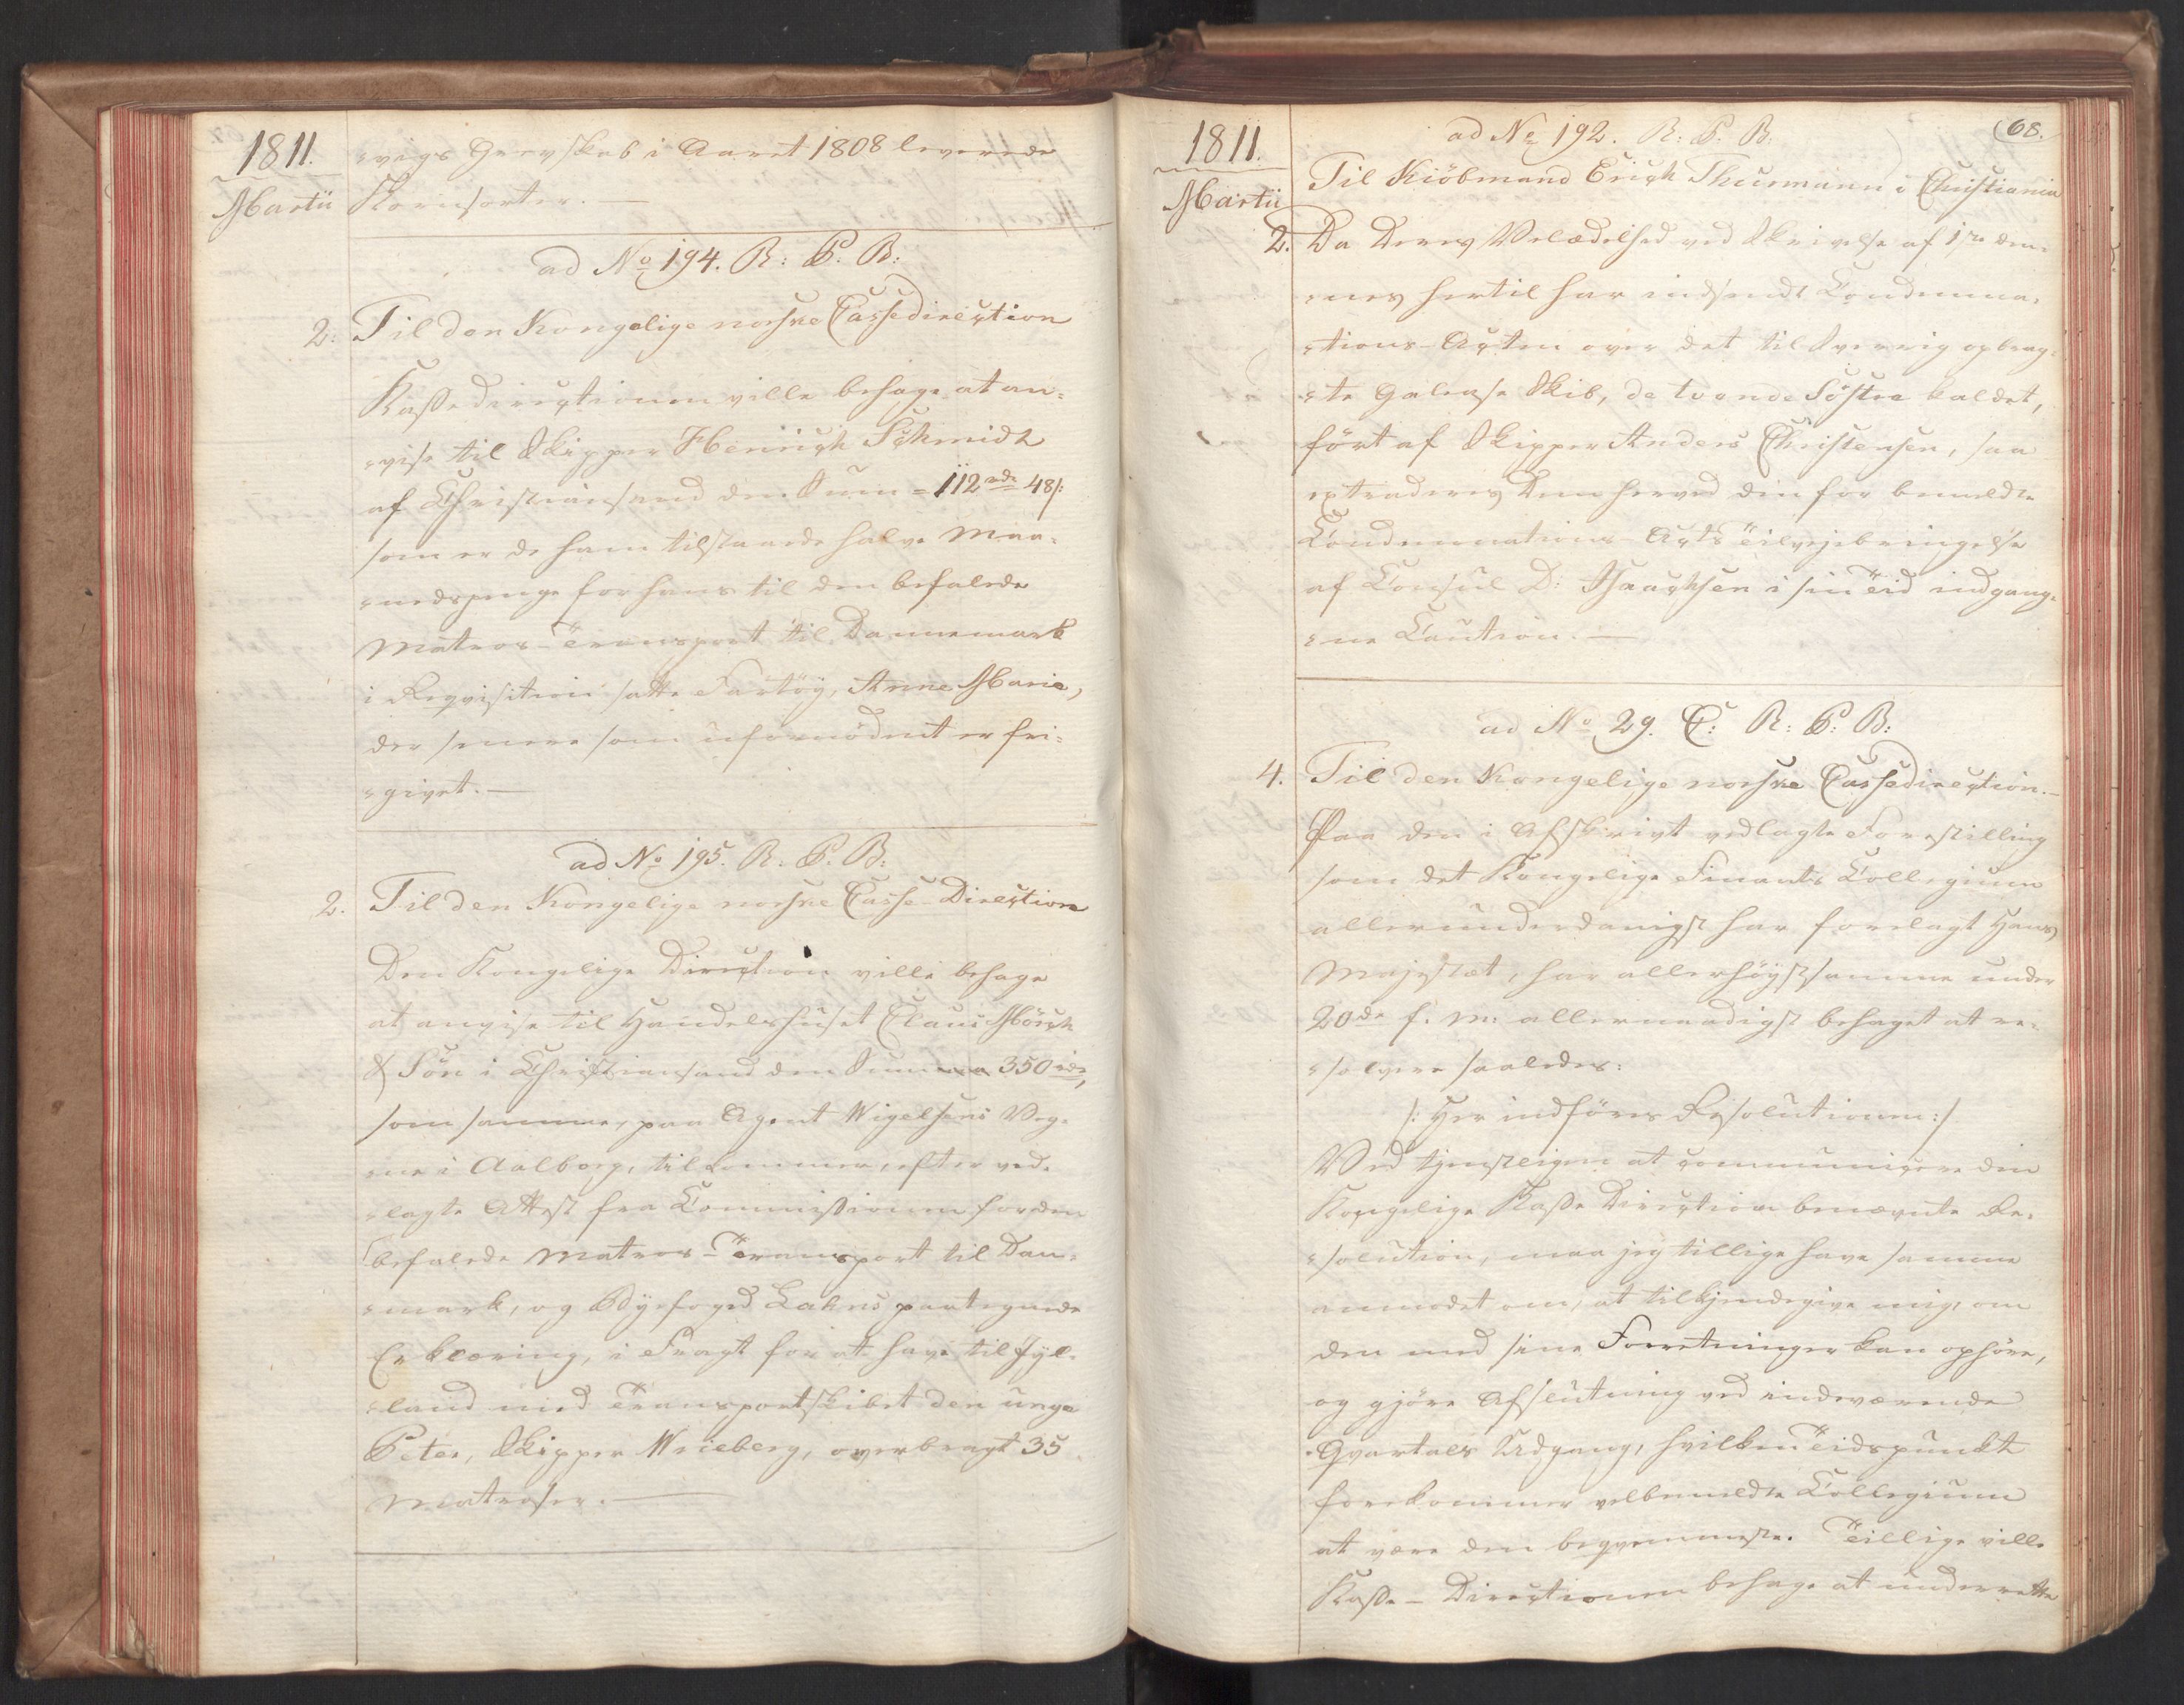 1811.
Martii
-vigs Grevskab i Aaret 1808 leverede
Kornsorter. —
ad No 194. R: P. B:
2. Til den Kongelige norske Cassedirection
Kassedirectionen ville behage at an-
-vise til Skipper Henrich Schmidt
af Christiansand den Sum = 112 rdr 48 s:
som er de ham tilstaaede halve Maa-
-nedspenge for hans til den befalede
Matros-Transport til Dannemark
i Reqvisition satte Fartöy, Anne Marie,
der senere som ufornödent er fri-
-givet. —
ad No 195. R. P. B:
2. Til den Kongelige norske Casse-Direction
Den Kongelige Direction ville behage
at anvise til Handelshuset Claus Mörch
& Sön i Christiansand den Summa 350 rdr,
som samme, paa Agent Wigelsens Veg-
-ne i Aalborg, tilkommer, efter ved-
-lagte Attest fra Commissionen for den
befalede Matros-Transport til Dan-
-mark, og Byefoged Lahns paategnede
Erklæring, i Fragt for at have til Jyl-
-land med Transportskibet den unge
Peter, Skipper Wrieberg, overbragt 35
Matroser. —
1811.
Martii
68.
ad No 192. R: P. B.
Til Kiöbmand Erich Thurmann i Christiania
2. Da Deres Velædelhed ved Skrivelse af 1ste den-
-nes hertil har indsendt Condemna-
-tions-Acten over det til Sverrig opbrag-
-te Galease Skib, de tvende Söstre kaldet,
fört af Skipper Anders Christensen, saa
extraderes Dem herved den for bemeldte
Condemnations-Acts Tilvejebringelse
af Consul D: Isaachsen i sin Tid indgang-
-ne Caution. —
ad No 29. C: R: P: B:
4. Til den Kongelige norske Cassedirection. —
Paa den i Afskrivt vedlagte Forestilling
som det Kongelige Finants Collegium
allerunderdanigst har forelagt Hans
Majestæt, har allerhöystsamme under
20de f. M: allernaadigst behaget at re-
-solvere saaledes:
/: Her indföres Resolutionen :/
Ved tjenstligen at communicere den
Kongelige Kasse Direction benævnte Re-
-solution, maa jeg tillige have samme
anmodet om, at tilkjendegive mig, om
den med sine Forretninger kan ophöre,
og gjöre Afslutning ved indeværende
Qvartals Udgang, hvilken Tidspunkt
forekommer velbemeldte Collegium
at være den beqvemmeste. Tillige ville
Kasse-Directionen behage at underrette